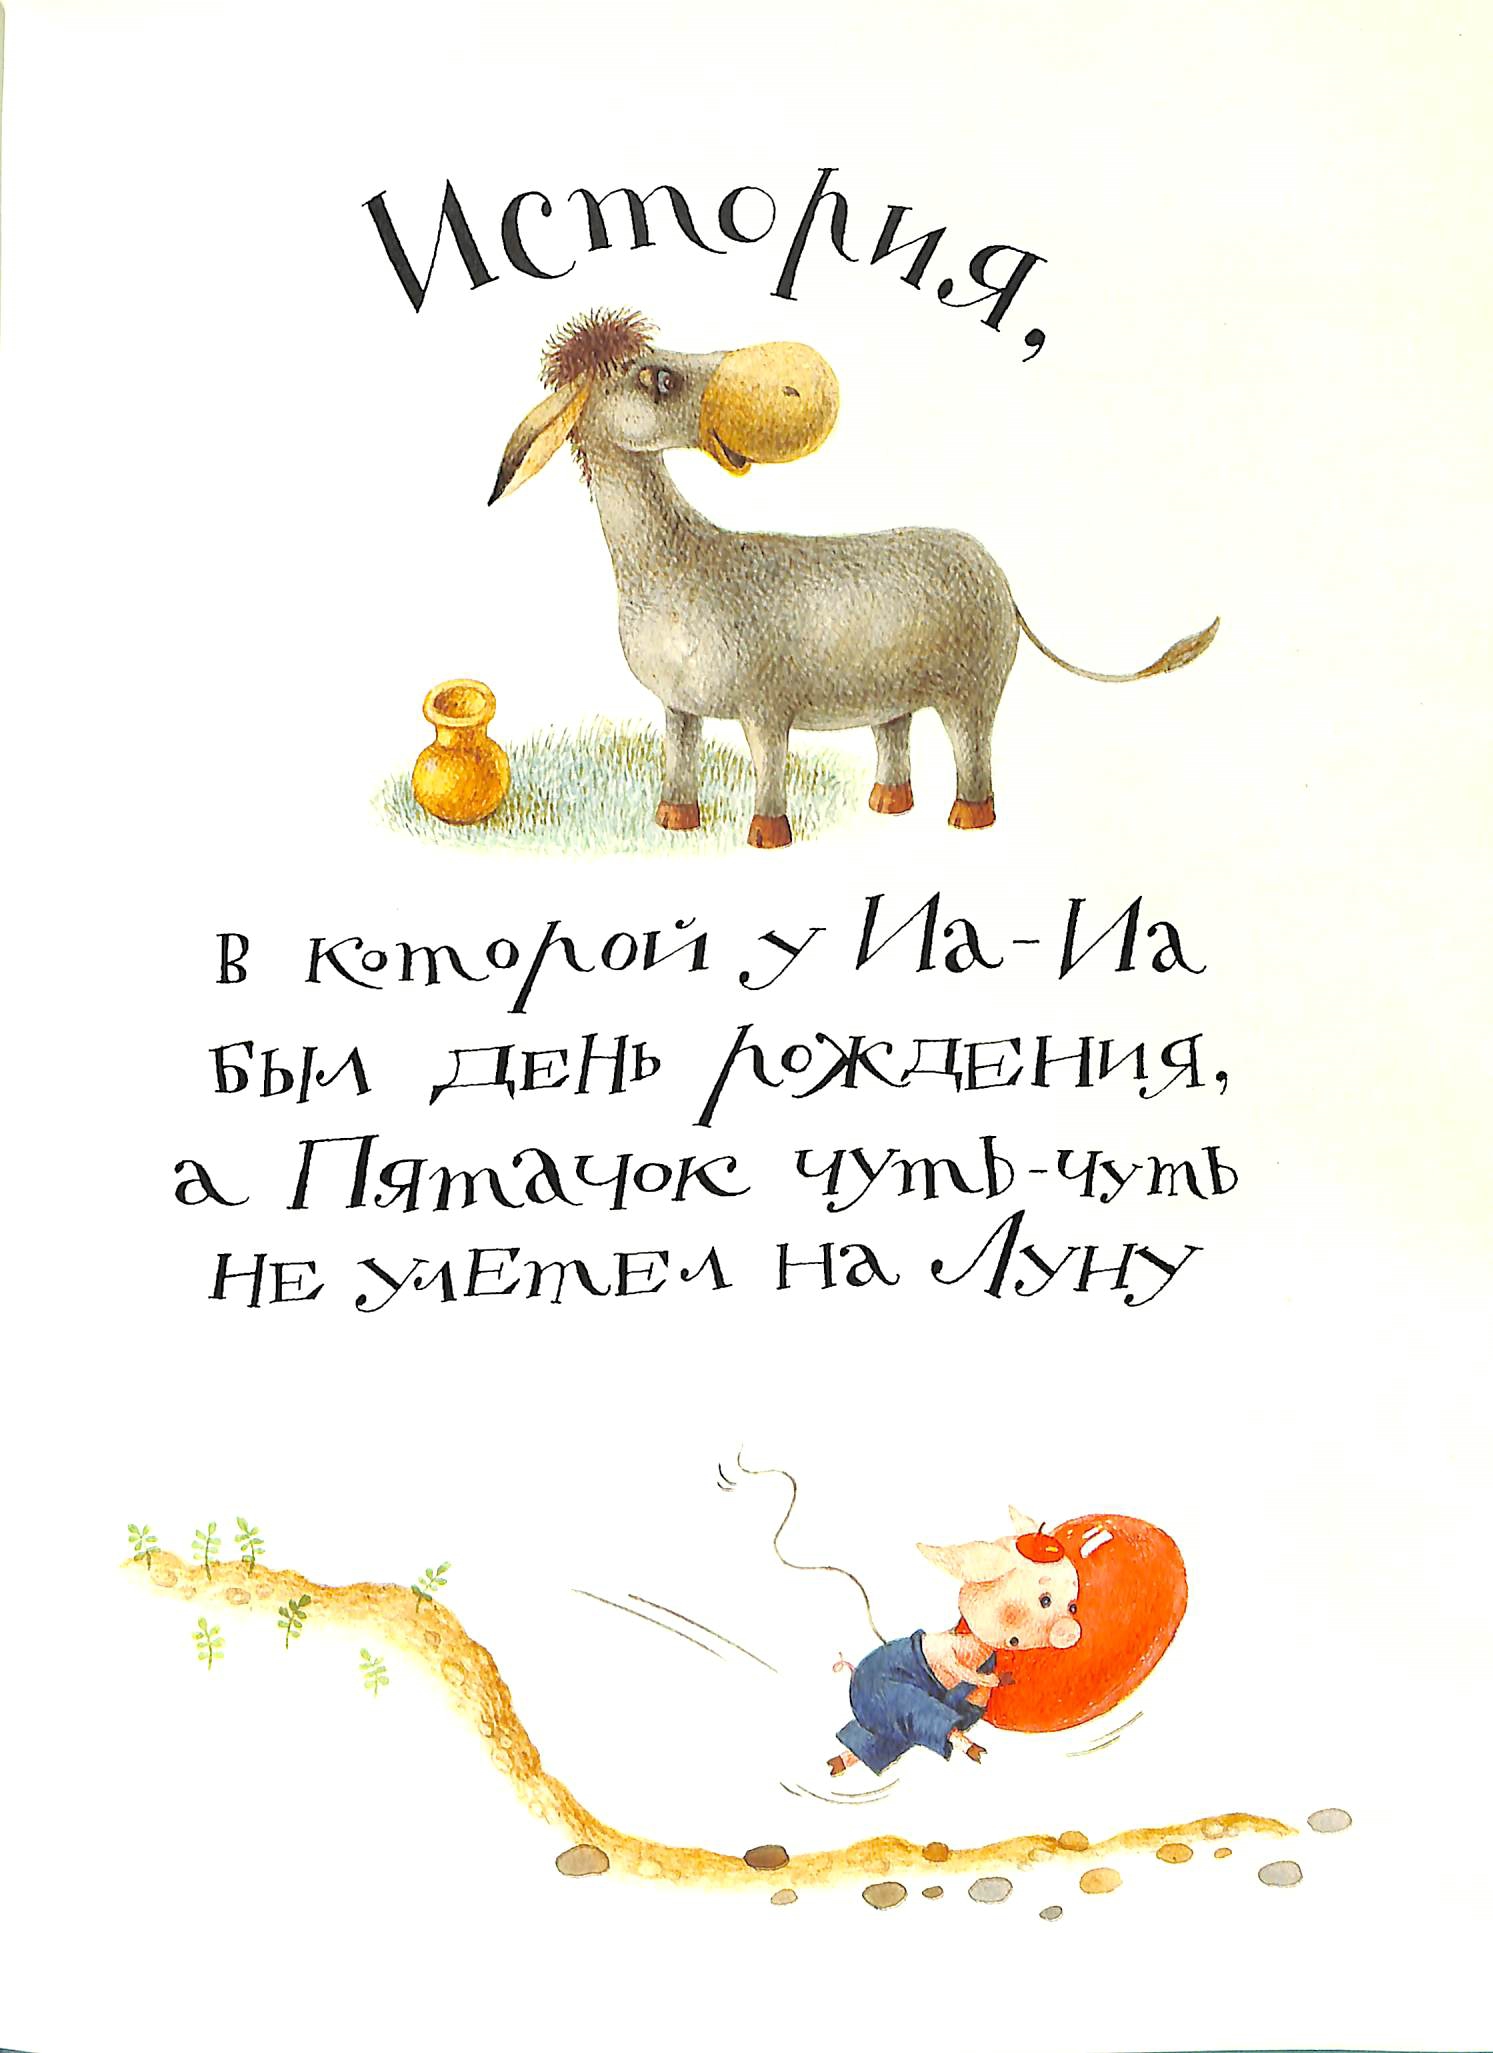 История,
в которой у Иа-Иа
был день рождения,
а Пятачок чуть-чуть
не улетел на Луну